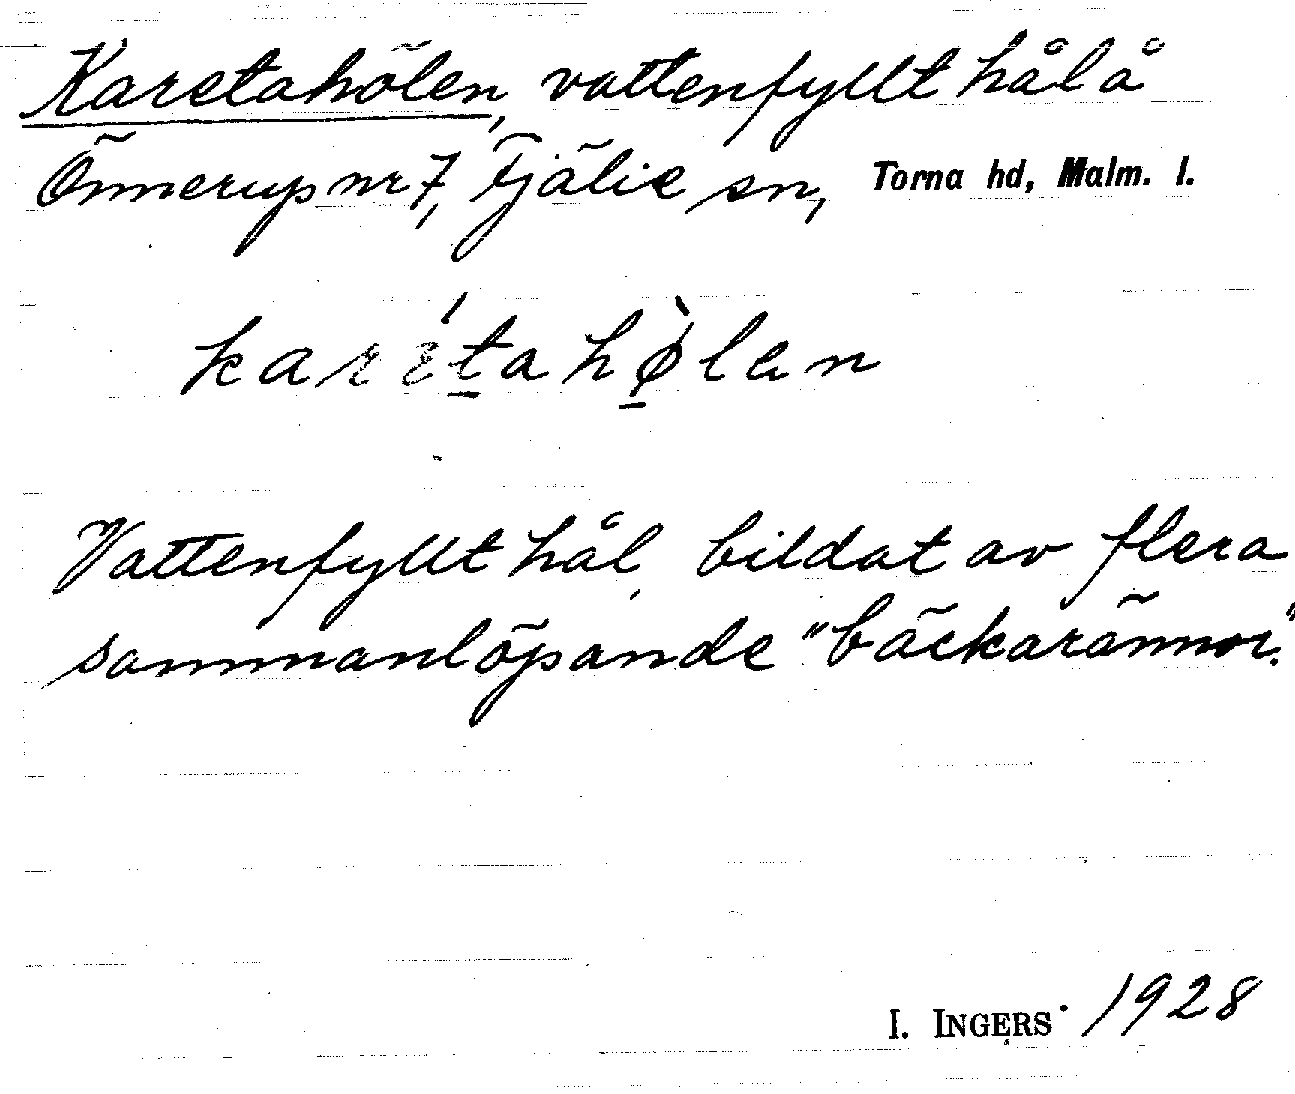 Karetahölen, vattenfyllt hål å
Önnerup nr 7, Fjälie sn, Torna hd, Malm. l.
karétahø̀len
Vattenfyllt hål, bildat av flera
sammanlöpande "bäckarännor."
I. INGERS 1928